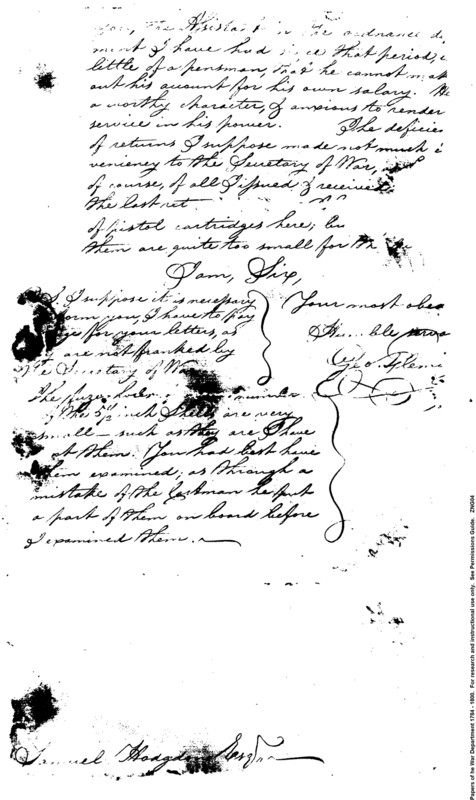 you, the Assistant in the ordnance de
ment I have had since that period, i
little of a pensman, that he cannot mak
out his account for his own salary. He
a worthy character, & anxious to render
service in his power. The deficie
of returns I suppose made not much i
veniency to the Secretary of War,
of course, of all I issued & receive
the last ret
of pistol cartridges here; bu
them are quite too small for th
I am, Sir,
Your most obed
Humble
Geo: Flemi
P.S. I suppose it is necessary
inform you, I have to pay
for your letters, as
are not franked by
the Secretary of War
The fuze holes number
of the 5 1/2 inch Shells are very
small – such as they are I have
them. You had best have
them examined, as through a
mistake of the Cartman he put
a part of them on board before
I examined them.
Samuel Hodgd Esqr
Papers of he War Department 1784 - 1800. For research and instructional use only. See Permissions Guide. ZNG04